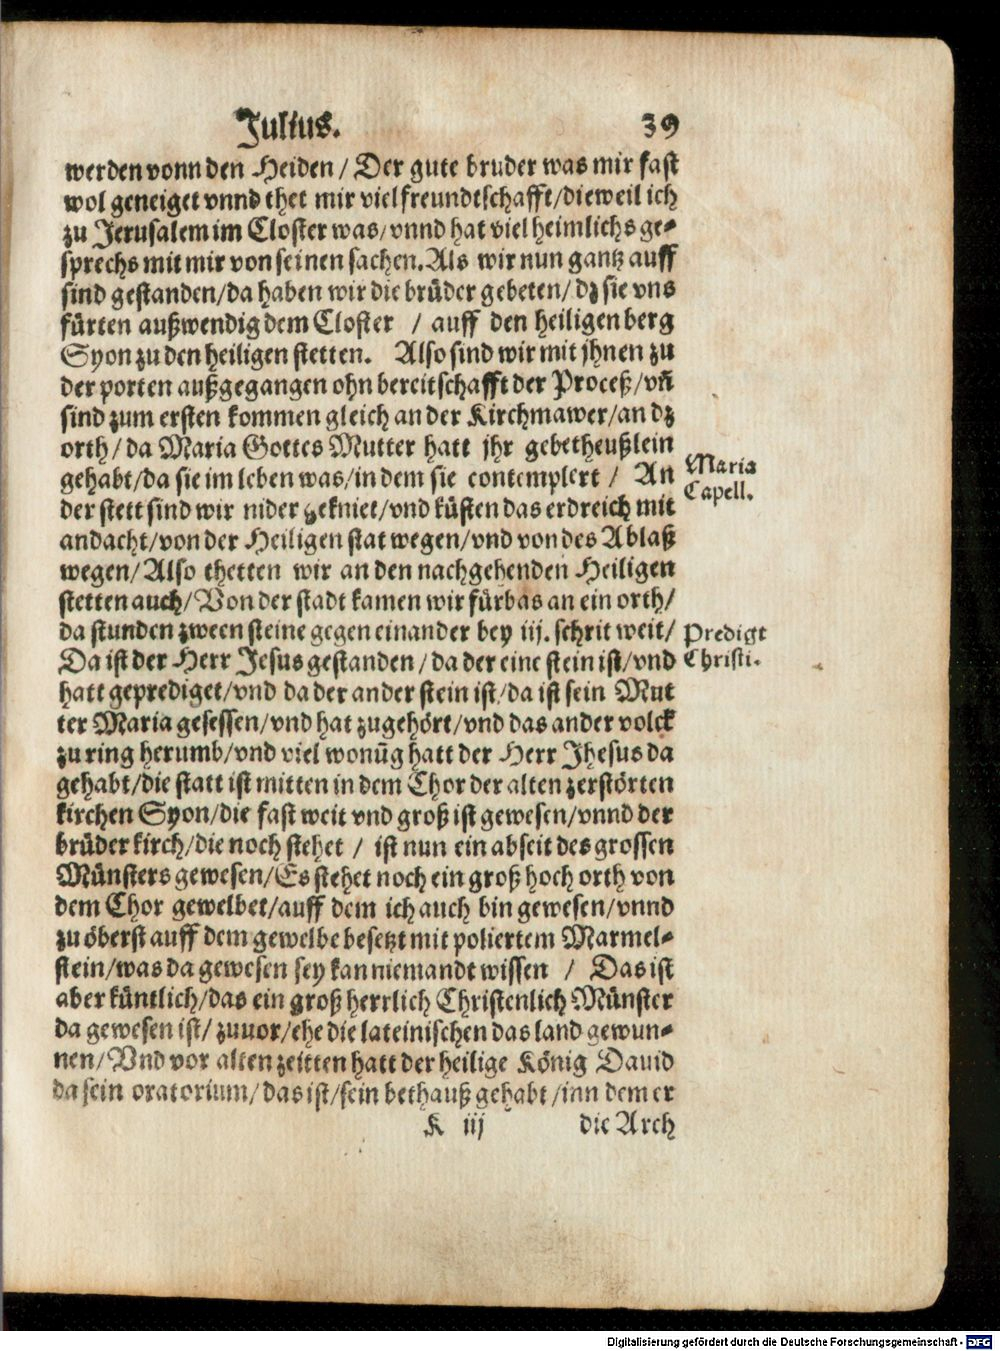 Julius. 39
werden vonn den Heiden / Der gute bruder was mir fast
wol geneiget vnnd thet mir viel freundtschafft/dieweil ich
zu Jerusalem im Closter was/vnnd hat viel heimlichs ge-
sprechs mit mir von seinen sachen. Als wir nun gantz auff
sind gestanden/da haben wir die brüder gebeten/dz sie vns
fürten außwendig dem Closter / auff den heiligen berg
Syon zu den heiligen stetten. Also sind wir mit jhnen zu
der porten außgegangen ohn bereitschafft der Proceß/vñ
sind zum ersten kommen gleich an der Kirchmawer/an dz
orth/da Maria Gottes Mutter hatt jhr gebetheußlein
gehabt/da sie im leben was/in dem sie contemplert / An
Maria
Capell.
der stett sind wir nider gekniet/vnd küsten das erdreich mit
andacht/von der Heiligen stat wegen/vnd von des Ablaß
wegen/Also thetten wir an den nachgehenden Heiligen
stetten auch/Von der stadt kamen wir fürbas an ein orth/
da stunden zween steine gegen einander bey iij. schrit weit/
Predigt
Christi.
Da ist der Herr Jesus gestanden/da der eine stein ist/vnd
hatt geprediget/vnd da der ander stein ist/da ist sein Mut
ter Maria gesessen/vnd hat zugehört/vnd das ander volck
zu ring herumb/vnd viel wonūg hatt der Herr Jhesus da
gehabt/die statt ist mitten in dem Chor der alten zerstörten
kirchen Syon/die fast weit vnd groß ist gewesen/vnnd der
brüder kirch/die noch stehet / ist nun ein abseit des grossen
Münsters gewesen/Es stehet noch ein groß hoch orth von
dem Chor gewelbet/auff dem ich auch bin gewesen/vnnd
zu öberst auff dem gewelbe besetzt mit poliertem Marmel-
stein/was da gewesen sey kan niemandt wissen / Das ist
aber küntlich/das ein groß herrlich Christenlich Münster
da gewesen ist/ zuuor/ehe die lateinischen das land gewun-
nen/Vnd vor alten zeitten hatt der heilige König Dauid
da sein oratorium/das ist/sein bethauß gehabt/inn dem er
K iij die Arch
Digitalisierung gefördert durch die Deutsche Forschungsgemeinschaft - DFG